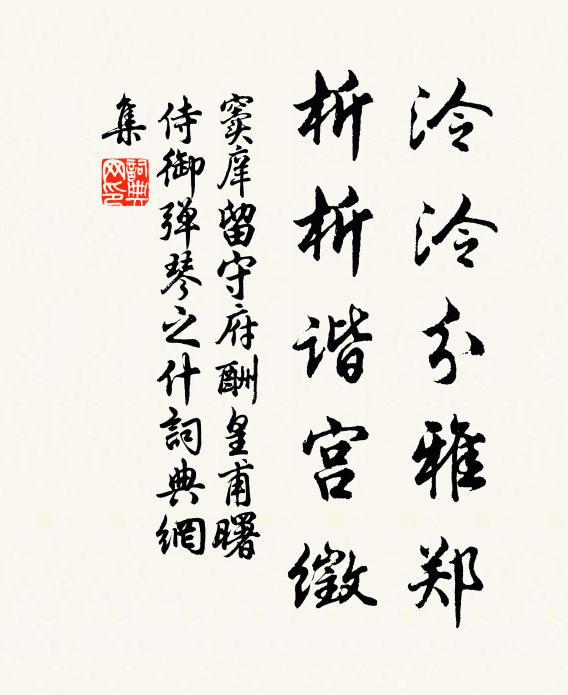 泠泠分雅郑
析析谐宫徵
窦庠留守府酬皇甫曙
侍御弹琴之什詞典網
集
詞典
网印